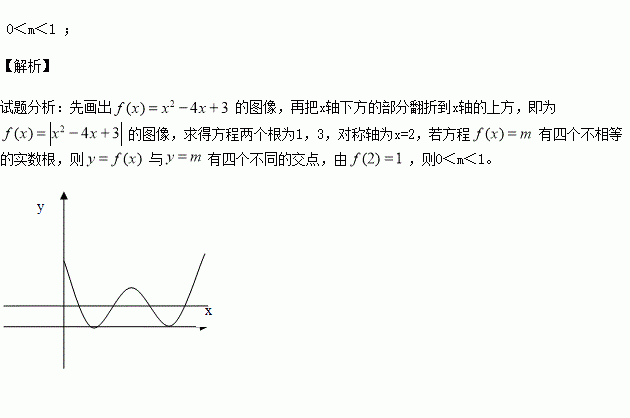 0<m<1 ;
【解析】
试题分析: 先画出 f(x)=x²−4x+3 的图像，再把x轴下方的部分翻折到x轴的上方，即为
f(x)=|x²−4x+3| 的图像，求得方程两个根为1，3，对称轴为x=2，若方程 f(x)=m 有四个不相等
的实数根，则 y=f(x) 与 y=m 有四个不同的交点，由 f(2)=1 ，则0<m<1。
y
x